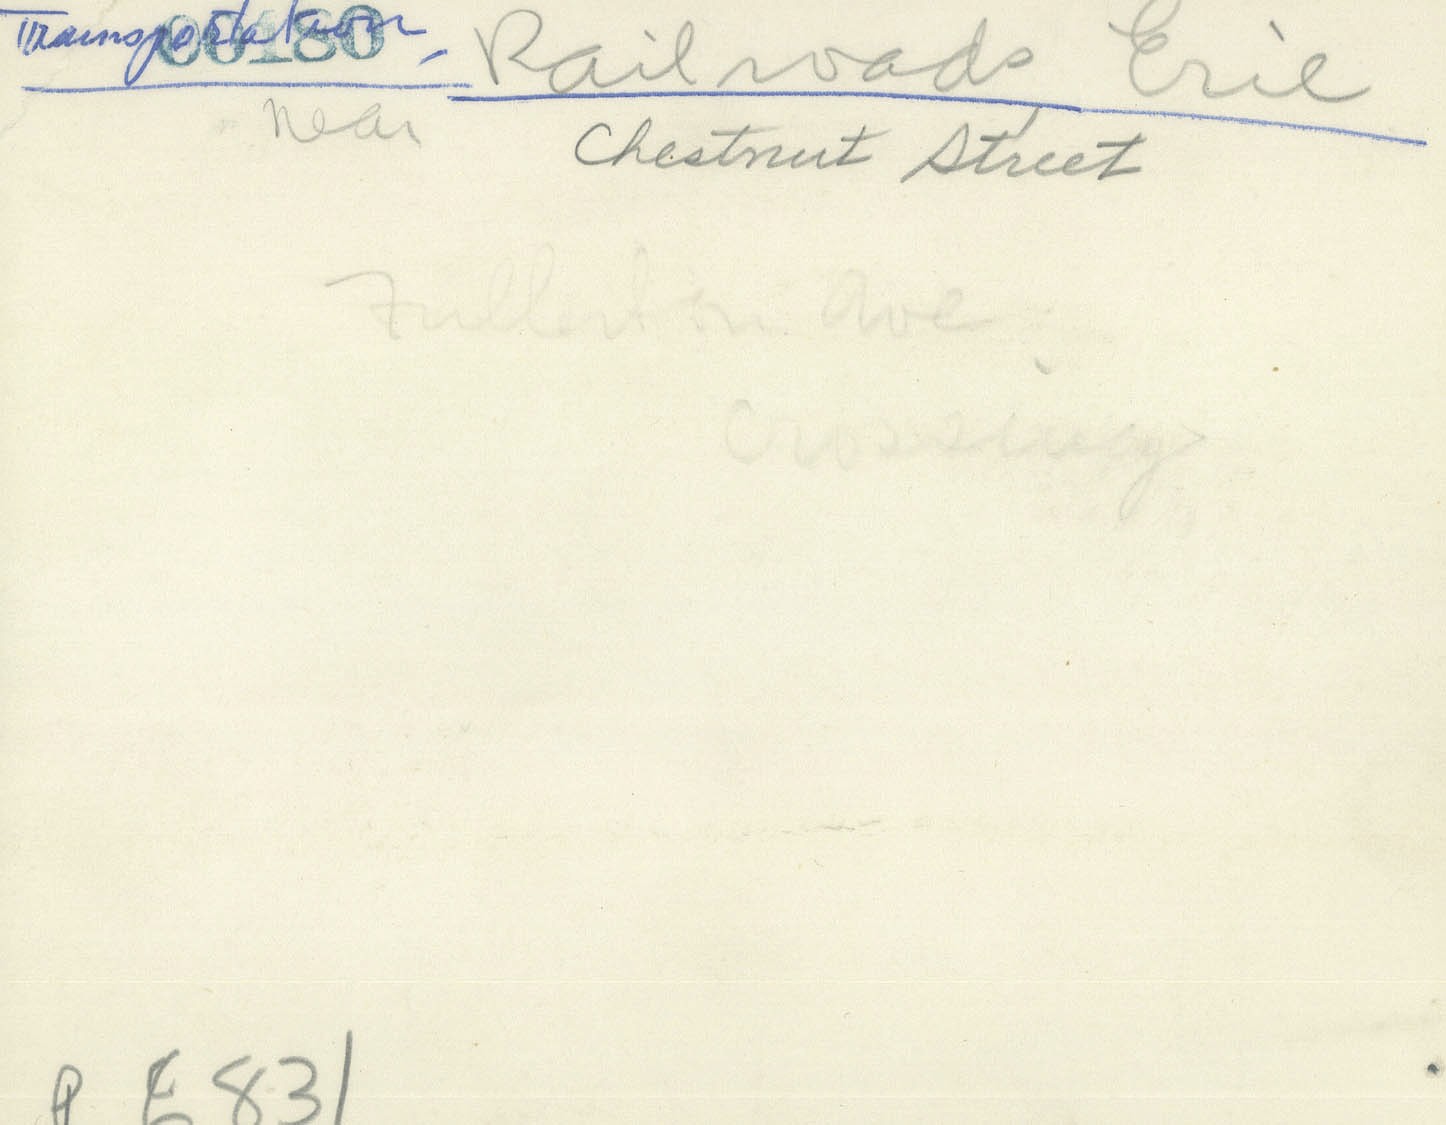 Transportation, Railroads Erie
00180
near Chestnut Street
Fullerton Ave
Crossing
P E 831